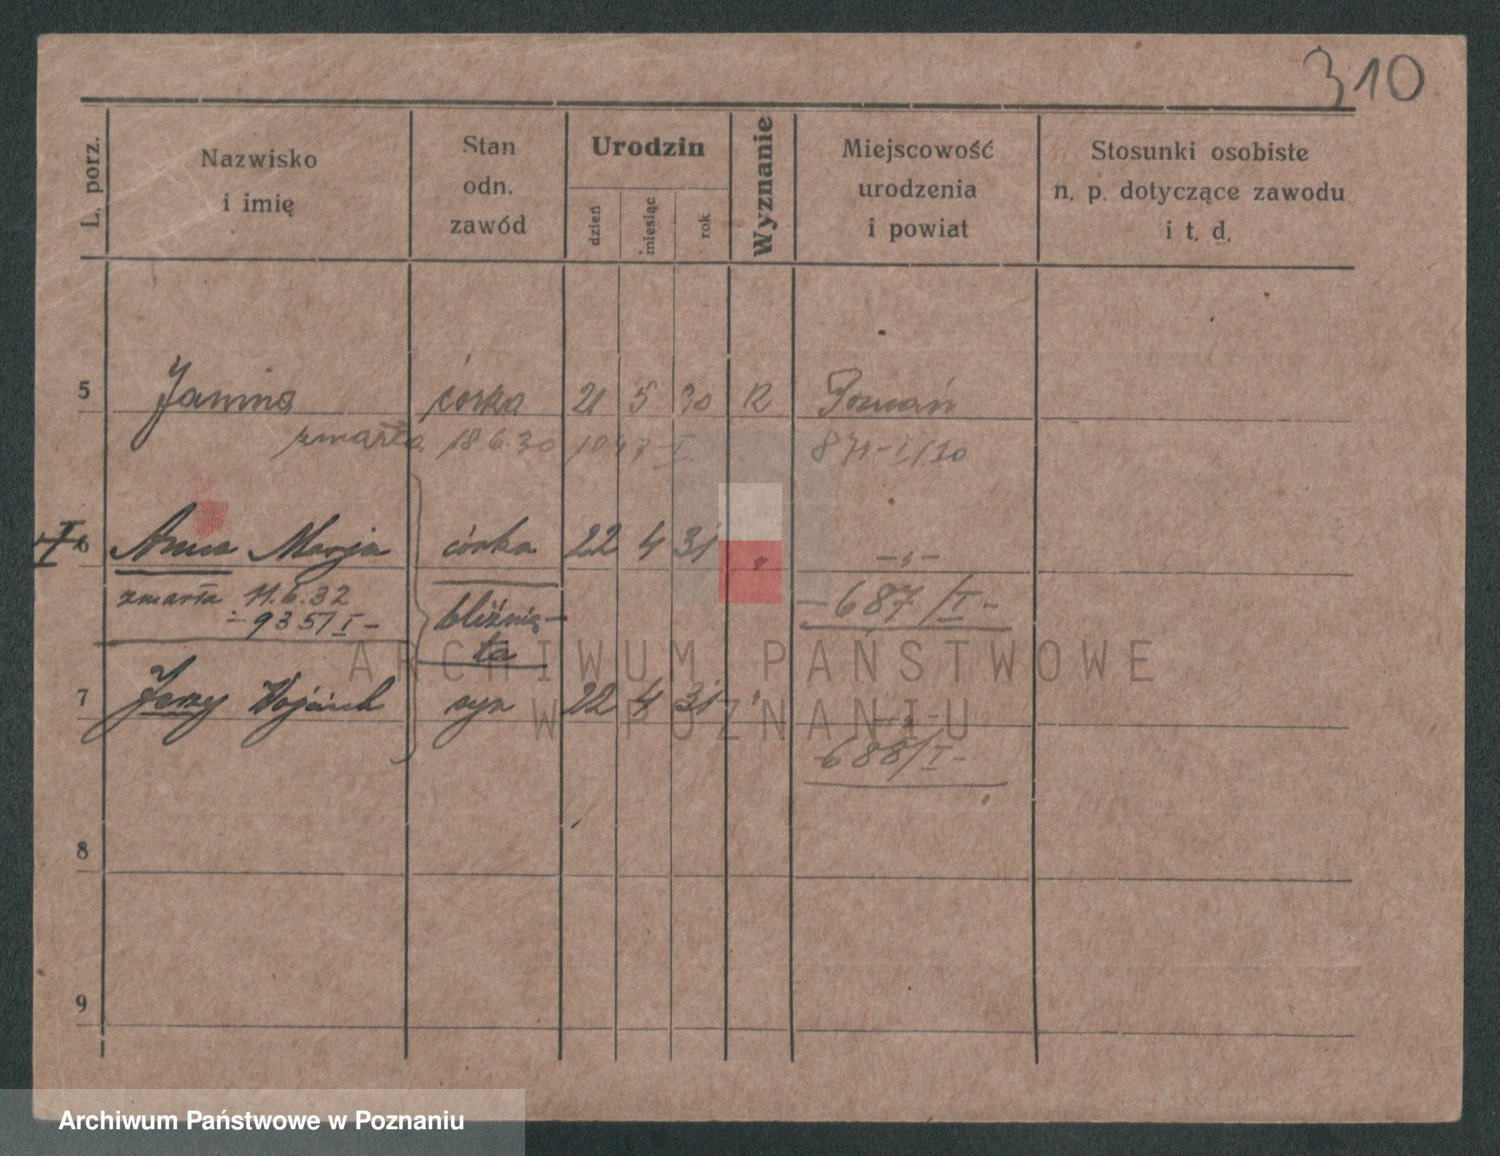 310
L. porz.
Nazwisko
i imię
Stan
odn.
zawód
Urodzin
dzień
miesiąc
rok
Wyznanie
Miejscowość
urodzenia
i powiat
Stosunki osobiste
n. p. dotyczące zawodu
i t. d.
5 Janina córka 21 5 30 R Poznań
zmarła 18.6.30 1047-I 871-I/30
I 6 Anna Marja córka 22 4 31 " -"-
zmarła 11.6.32
-935/I- bliźnię-
ta
-687/I-
7 Jerzy Wojciech syn 22 4 31 " -"-
688/I-
8
9
ARCHIWUM PAŃSTWOWE
W POZNANIU
Archiwum Państwowe w Poznaniu